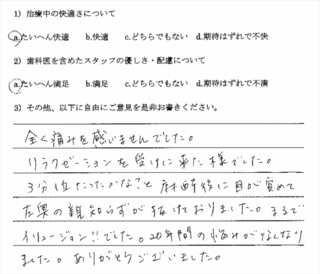 1) 治療中の快適さについて
a.たいへん快適 b.快適 c.どちらでもない d.期待はずれで不快
2) 歯科医を含めたスタッフの優しさ・配慮について
a.たいへん満足 b.満足 c.どちらでもない d.期待はずれで不満
3) その他、以下に自由にご意見を是非お書きください。
全く痛みを感いませんでした。
リラクゼーションを受けに来た様でした。
3分位たったかな?と 麻酔後に目が覚めて
左奥の親知らずが抜けておりました。まるで
イリュージョン!!でした。20年間の悩みがなくなり
ました。ありがとうございました。